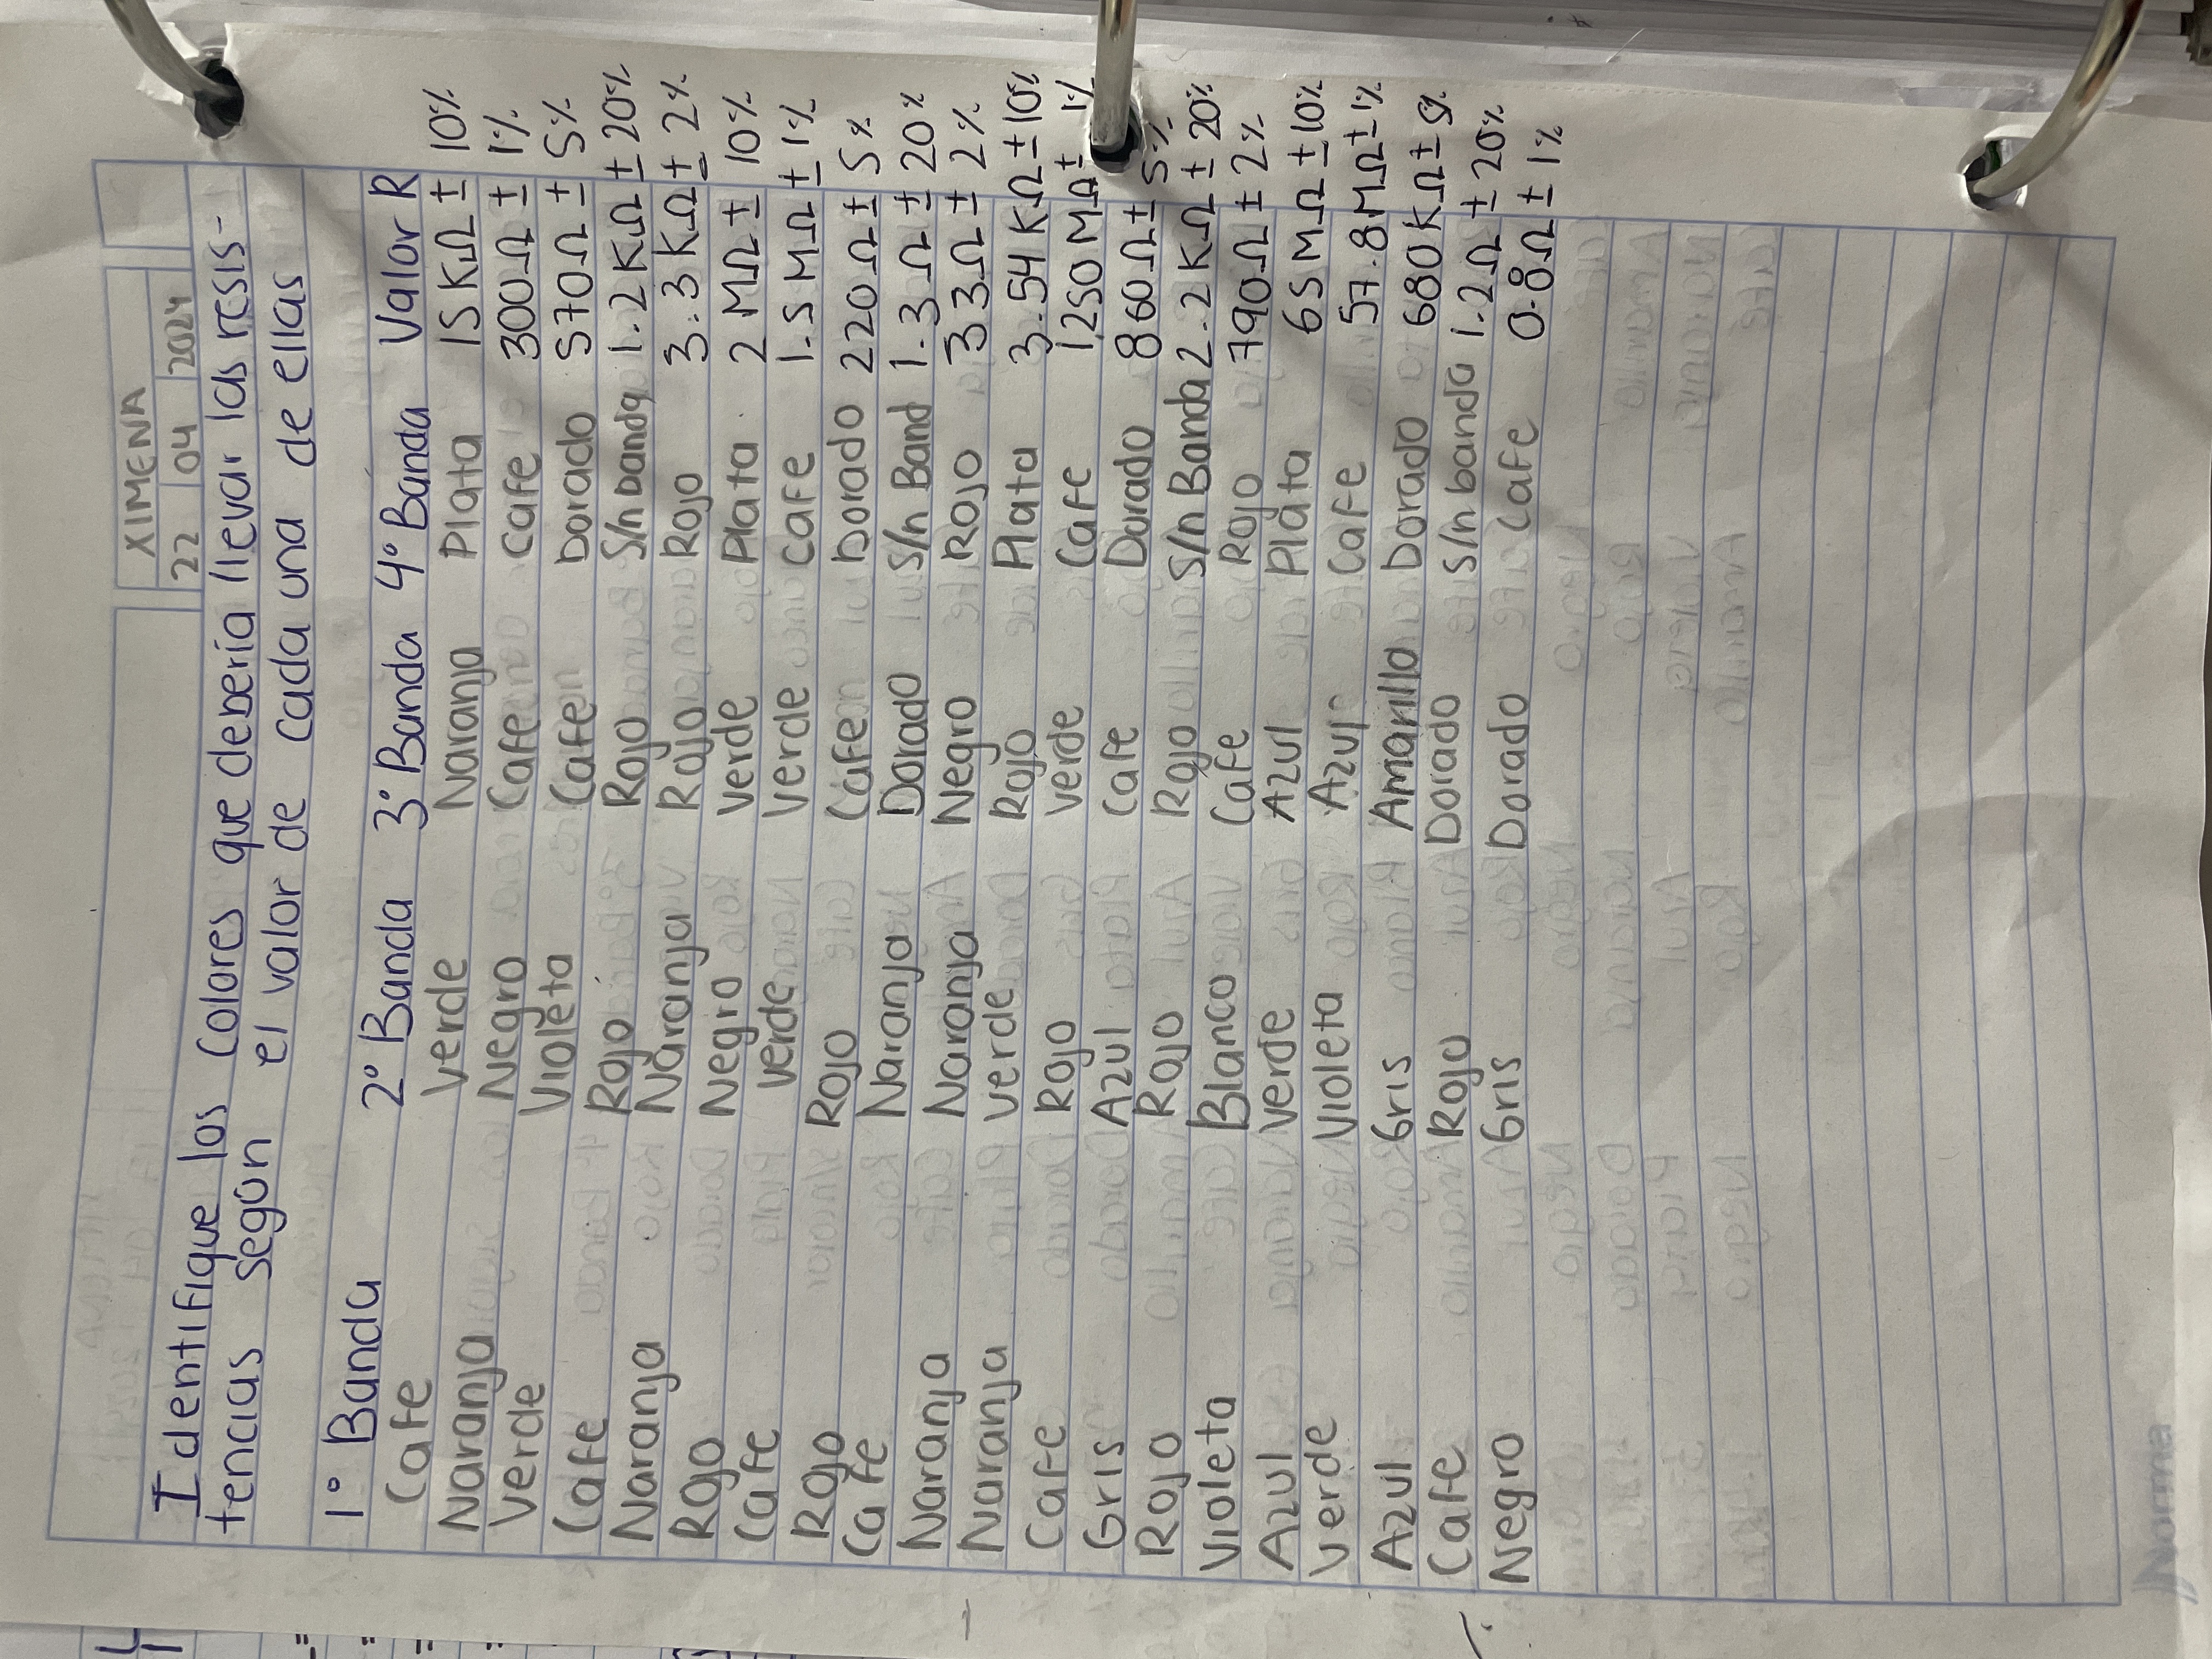 XIMENA
22 04 2024
Identifique los Colores que debería llevar las resis-
tencias según el valor de cada una de ellas
1° Banda 2° Banda 3° Banda 4° Banda Valor R
Cafe Verde Naranja Plata 15 KΩ ± 10%
Naranja Negro Cafe Cafe 300Ω ± 1%
Verde Violeta Cafe Dorado 570Ω ± 5%
Cafe Rojo Rojo S/n banda 1.2 KΩ ± 20%
Naranja Naranja Rojo Rojo 3.3 KΩ ± 2%
Rojo Negro Verde Plata 2 MΩ ± 10%
Cafe Verde Verde Cafe 1.5 MΩ ± 1%
Rojo Rojo Cafe Dorado 220Ω ± 5%
Cafe Naranja Dorado S/n Band 1.3Ω ± 20%
Naranja Naranja Negro Rojo 33Ω ± 2%
Naranja Verde Rojo Plata 3.54 KΩ ± 10%
Cafe Rojo Verde Cafe 1250 MΩ ± 1%
Gris Azul Cafe Dorado 860Ω ± 5%
Rojo Rojo Rojo S/n Banda 2.2 KΩ ± 20%
Violeta Blanco Cafe Rojo 790Ω ± 2%
Azul Verde Azul Plata 65 MΩ ± 10%
Verde Violeta Azul Cafe 57.8MΩ ± 1%
Azul Gris Amarillo Dorado 680KΩ ± 5%
Cafe Rojo Dorado S/n banda 1.2Ω ± 20%
Negro Gris Dorado Cafe 0.8Ω ± 1%
Norma